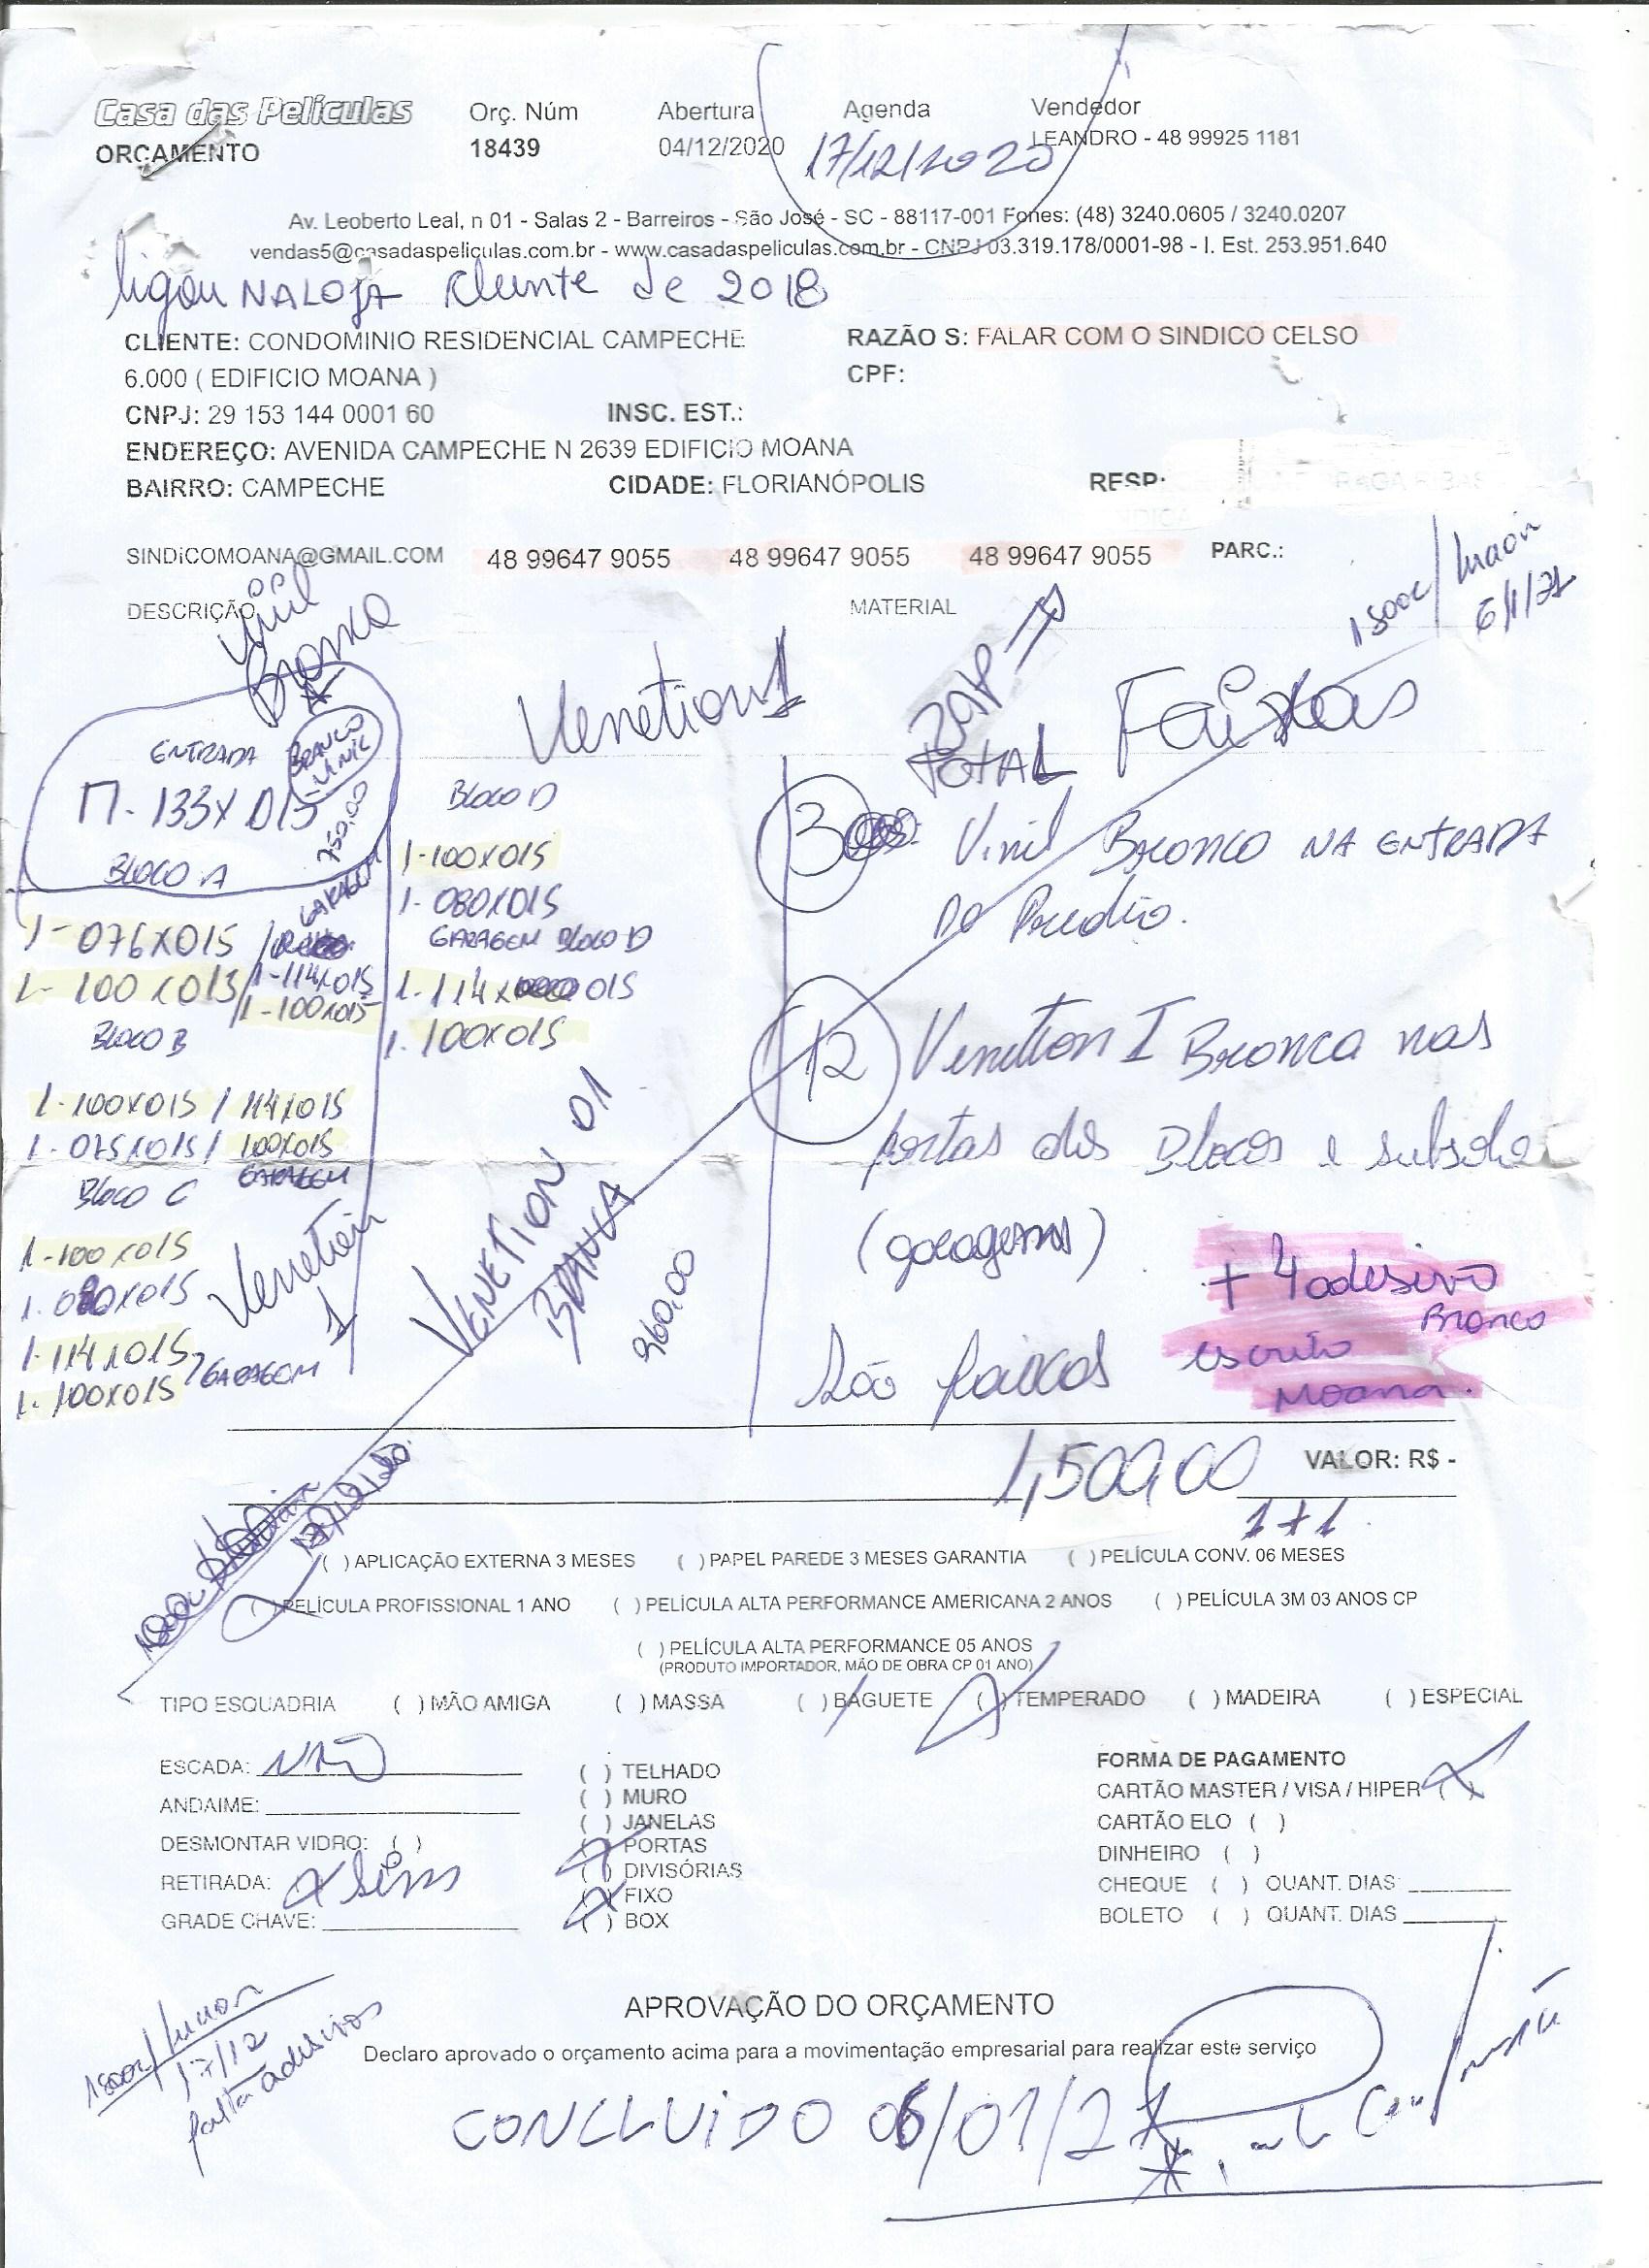 Casa das Películas
ORÇAMENTO
Orç. Núm
18439
Abertura
04/12/2020
Agenda
17/12/2020
Vendedor
LEANDRO - 48 99925 1181
Av. Leoberto Leal, n 01 - Salas 2 - Barreiros - São José - SC - 88117-001 Fones: (48) 3240.0605 / 3240.0207
vendas5@casadaspeliculas.com.br - www.casadaspeliculas.com.br - CNPJ 03.319.178/0001-98 - I. Est. 253.951.640
ligou NA LOJA cliente de 2018
CLIENTE: CONDOMINIO RESIDENCIAL CAMPECHE
6.000 ( EDIFICIO MOANA )
RAZÃO S: FALAR COM O SINDICO CELSO
CPF:
CNPJ: 29 153 144 0001 60
INSC. EST.:
ENDEREÇO: AVENIDA CAMPECHE N 2639 EDIFICIO MOANA
BAIRRO: CAMPECHE
CIDADE: FLORIANÓPOLIS
RESP:
SINDICOMOANA@GMAIL.COM
48 99647 9055
48 99647 9055
48 99647 9055
PARC.:
6/1/21
DESCRIÇÃO
MATERIAL
Vinil
Branco
Venetion 1
TOTAL
Faixas
ENTRADA
BRANCO
VINIL
17-133X015
750,00
BLOCO A
GARAGEM
1-076X015
1-114X015
1-100X015
1-100X015
BLOCO B
1-100X015 / 114X015
1-075X015 / 100X015
GARAGEM
BLOCO C
1-100X015
1-080X015
1-114X015
1-100X015
GARAGEM
Venetion
1
BLOCO D
1-100X015
1-080X015
GARAGEM BLOCO D
1-114X015
1-100X015
VENETION 01
BRANCA
960,00
3 Vinil Branco NA ENTRADA
do Predio.
12 Venetion I Branca nas
portas dos Blocos e subsolo
(garagens)
São faixas
+ 4 adesivo
Branco
escrito
Moana.
1,500,00
VALOR: R$ -
1+1
( ) APLICAÇÃO EXTERNA 3 MESES ( ) PAPEL PAREDE 3 MESES GARANTIA ( ) PELÍCULA CONV. 06 MESES
( ) PELÍCULA PROFISSIONAL 1 ANO ( ) PELÍCULA ALTA PERFORMANCE AMERICANA 2 ANOS ( ) PELÍCULA 3M 03 ANOS CP
( ) PELÍCULA ALTA PERFORMANCE 05 ANOS
(PRODUTO IMPORTADOR, MÃO DE OBRA CP 01 ANO)
TIPO ESQUADRIA ( ) MÃO AMIGA ( ) MASSA ( ) BAGUETE ( ) TEMPERADO ( ) MADEIRA ( ) ESPECIAL
ESCADA: NÃO
ANDAIME:
DESMONTAR VIDRO: ( )
RETIRADA: x Sim
GRADE CHAVE:
( ) TELHADO
( ) MURO
( ) JANELAS
( ) PORTAS
( ) DIVISÓRIAS
( ) FIXO
( ) BOX
FORMA DE PAGAMENTO
CARTÃO MASTER / VISA / HIPER (x)
CARTÃO ELO ( )
DINHEIRO ( )
CHEQUE ( ) QUANT. DIAS:
BOLETO ( ) QUANT. DIAS
17/12
falta adesivos
APROVAÇÃO DO ORÇAMENTO
Declaro aprovado o orçamento acima para a movimentação empresarial para realizar este serviço
CONCLUIDO 06/01/21